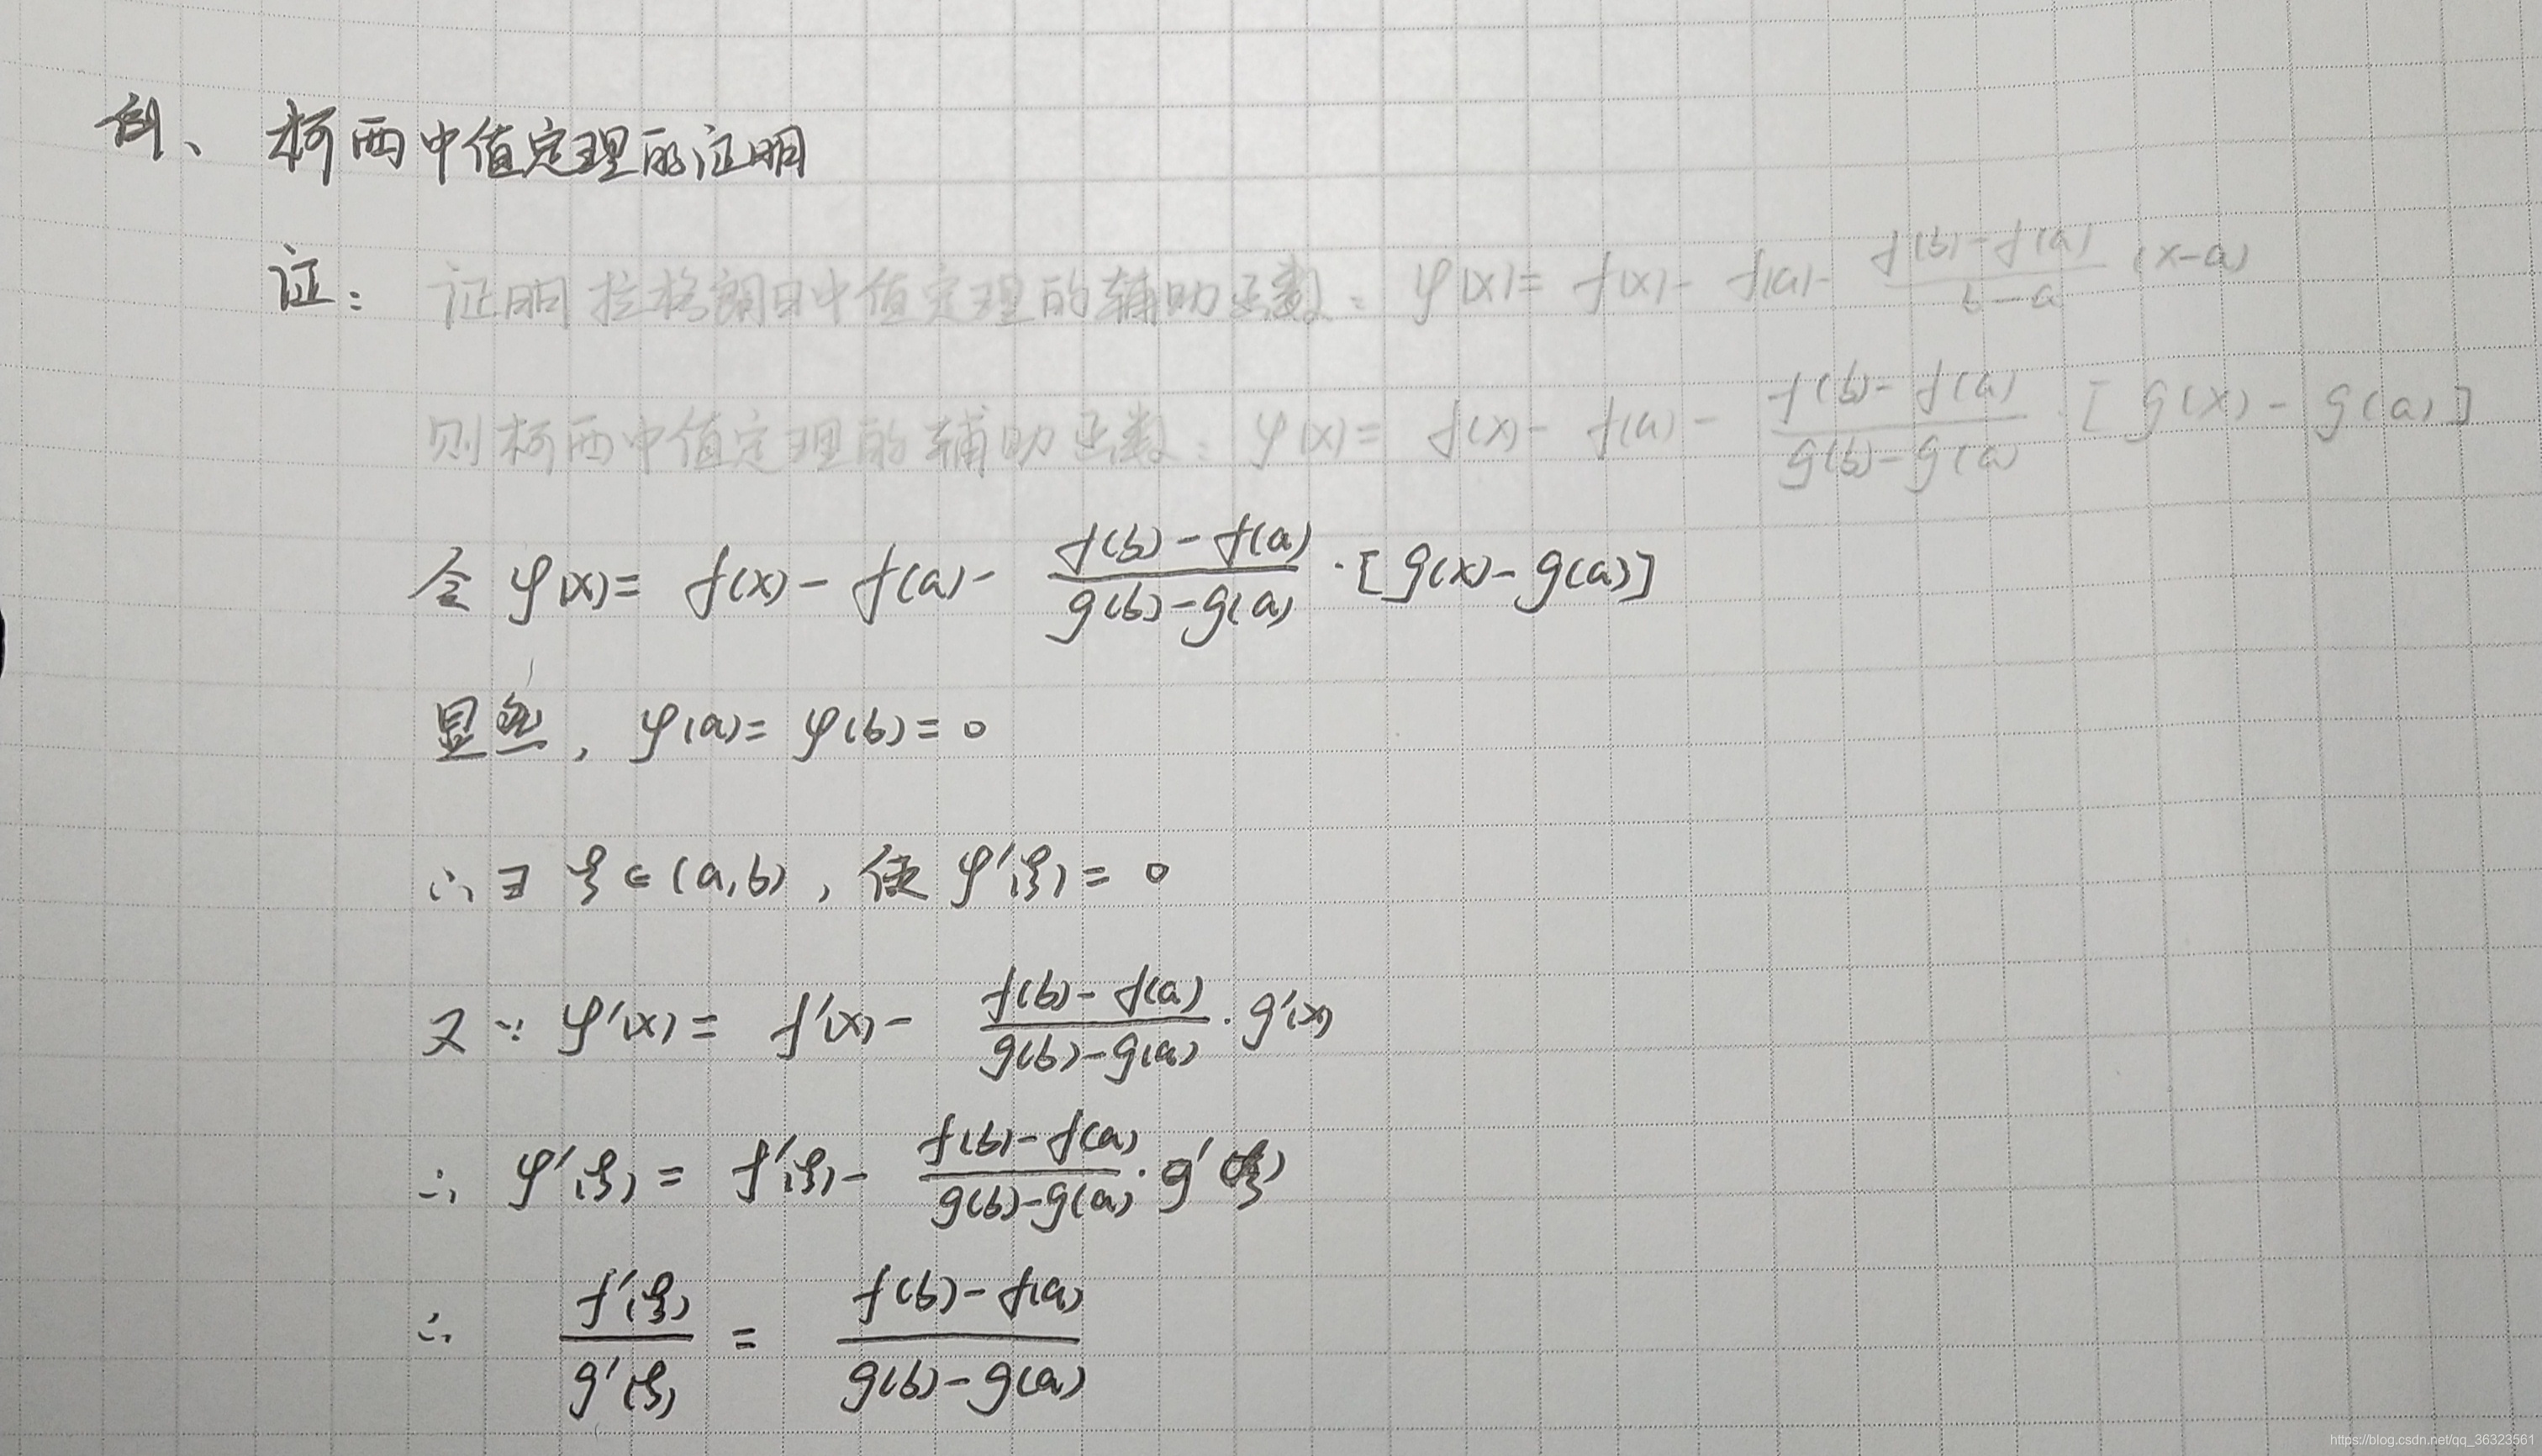 例、柯西中值定理的证明
证: 证明拉格朗日中值定理的辅助函数: φ(x)= f(x)- f(a)- \frac{f(b)-f(a)}{b-a} (x-a)
则柯西中值定理的辅助函数: φ(x)= f(x)- f(a)- \frac{f(b)-f(a)}{g(b)-g(a)}·[g(x)-g(a)]
令 φ(x)= f(x)- f(a)- \frac{f(b)-f(a)}{g(b)-g(a)}·[g(x)-g(a)]
显然, φ(a)= φ(b)= 0
∴∃ ξ∈(a,b), 使 φ'(ξ)= 0
又∵ φ'(x)= f'(x)- \frac{f(b)-f(a)}{g(b)-g(a)}·g'(x)
∴ φ'(ξ)= f'(ξ)- \frac{f(b)-f(a)}{g(b)-g(a)}·g'(ξ)
∴ \frac{f'(ξ)}{g'(ξ)} = \frac{f(b)-f(a)}{g(b)-g(a)}
https://blog.csdn.net/qq_36323561